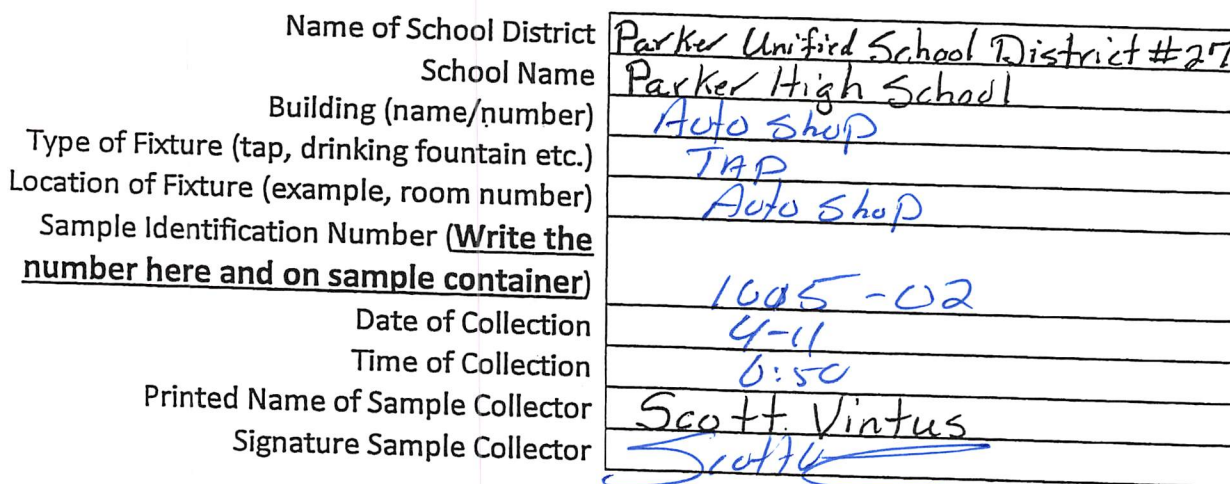 Name of School District Parker Unified School District #27
School Name Parker High School
Building (name/number) Auto Shop
Type of Fixture (tap, drinking fountain etc.) TAP
Location of Fixture (example, room number) Auto Shop
Sample Identification Number (Write the
number here and on sample container) 1005-02
Date of Collection 4-11
Time of Collection 6:50
Printed Name of Sample Collector Scott Vintus
Signature Sample Collector